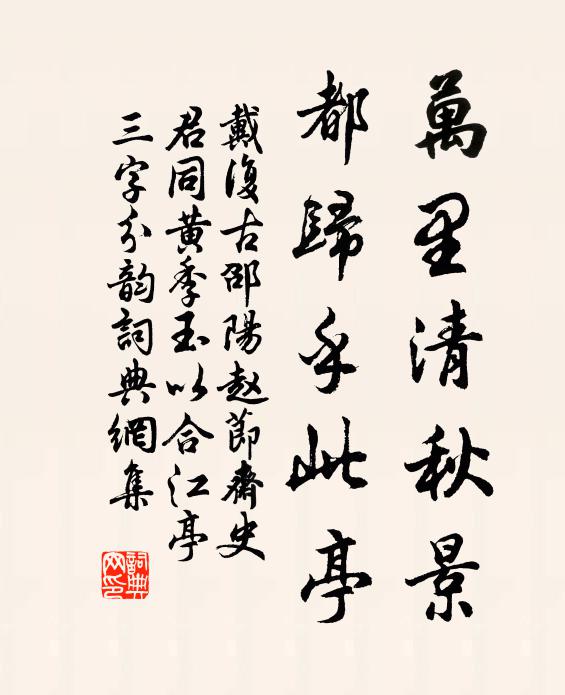 萬里清秋景
都歸乎此亭
戴復古邵陽赵節齋史
君同黄季玉以合江亭
三字分韵詞典網集
詞典網印